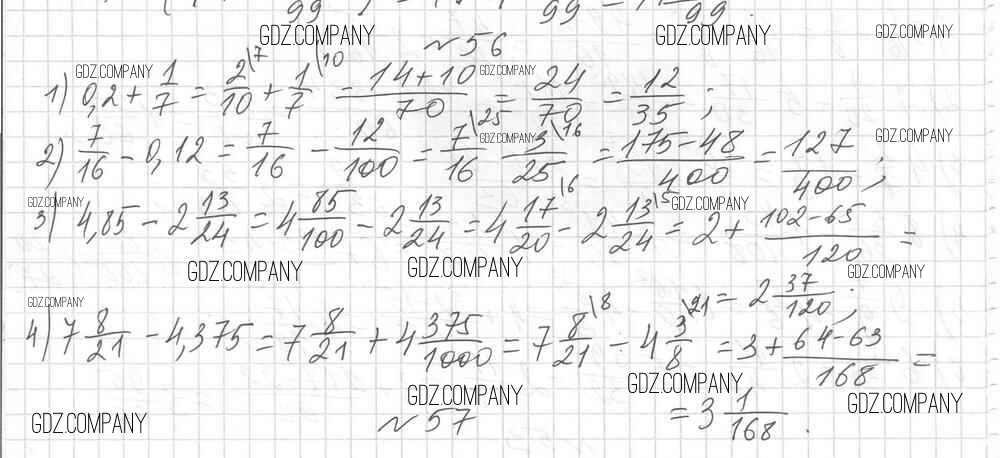 99 99 99 .
GDZ.COMPANY GDZ.COMPANY GDZ.COMPANY
№56
GDZ.COMPANY GDZ.COMPANY
1) 0,2 + 1/7 = 2/10 \7 + 1/7 \10 = 14+10/70 = 24/70 = 12/35 ;
GDZ.COMPANY GDZ.COMPANY
2) 7/16 - 0,12 = 7/16 - 12/100 = 7/16 \25 - 3/25 \16 = 175-48/400 = 127/400 ;
GDZ.COMPANY GDZ.COMPANY
3) 4,85 - 2 13/24 = 4 85/100 - 2 13/24 = 4 17/20 \6 - 2 13/24 \5 = 2 + 102-65/120 =
GDZ.COMPANY GDZ.COMPANY GDZ.COMPANY
= 2 37/120 ;
GDZ.COMPANY
4) 7 8/21 - 4,375 = 7 8/21 + 4 375/1000 = 7 8/21 \8 - 4 3/8 \21 = 3 + 64-63/168 =
GDZ.COMPANY GDZ.COMPANY GDZ.COMPANY
= 3 1/168 .
GDZ.COMPANY №57